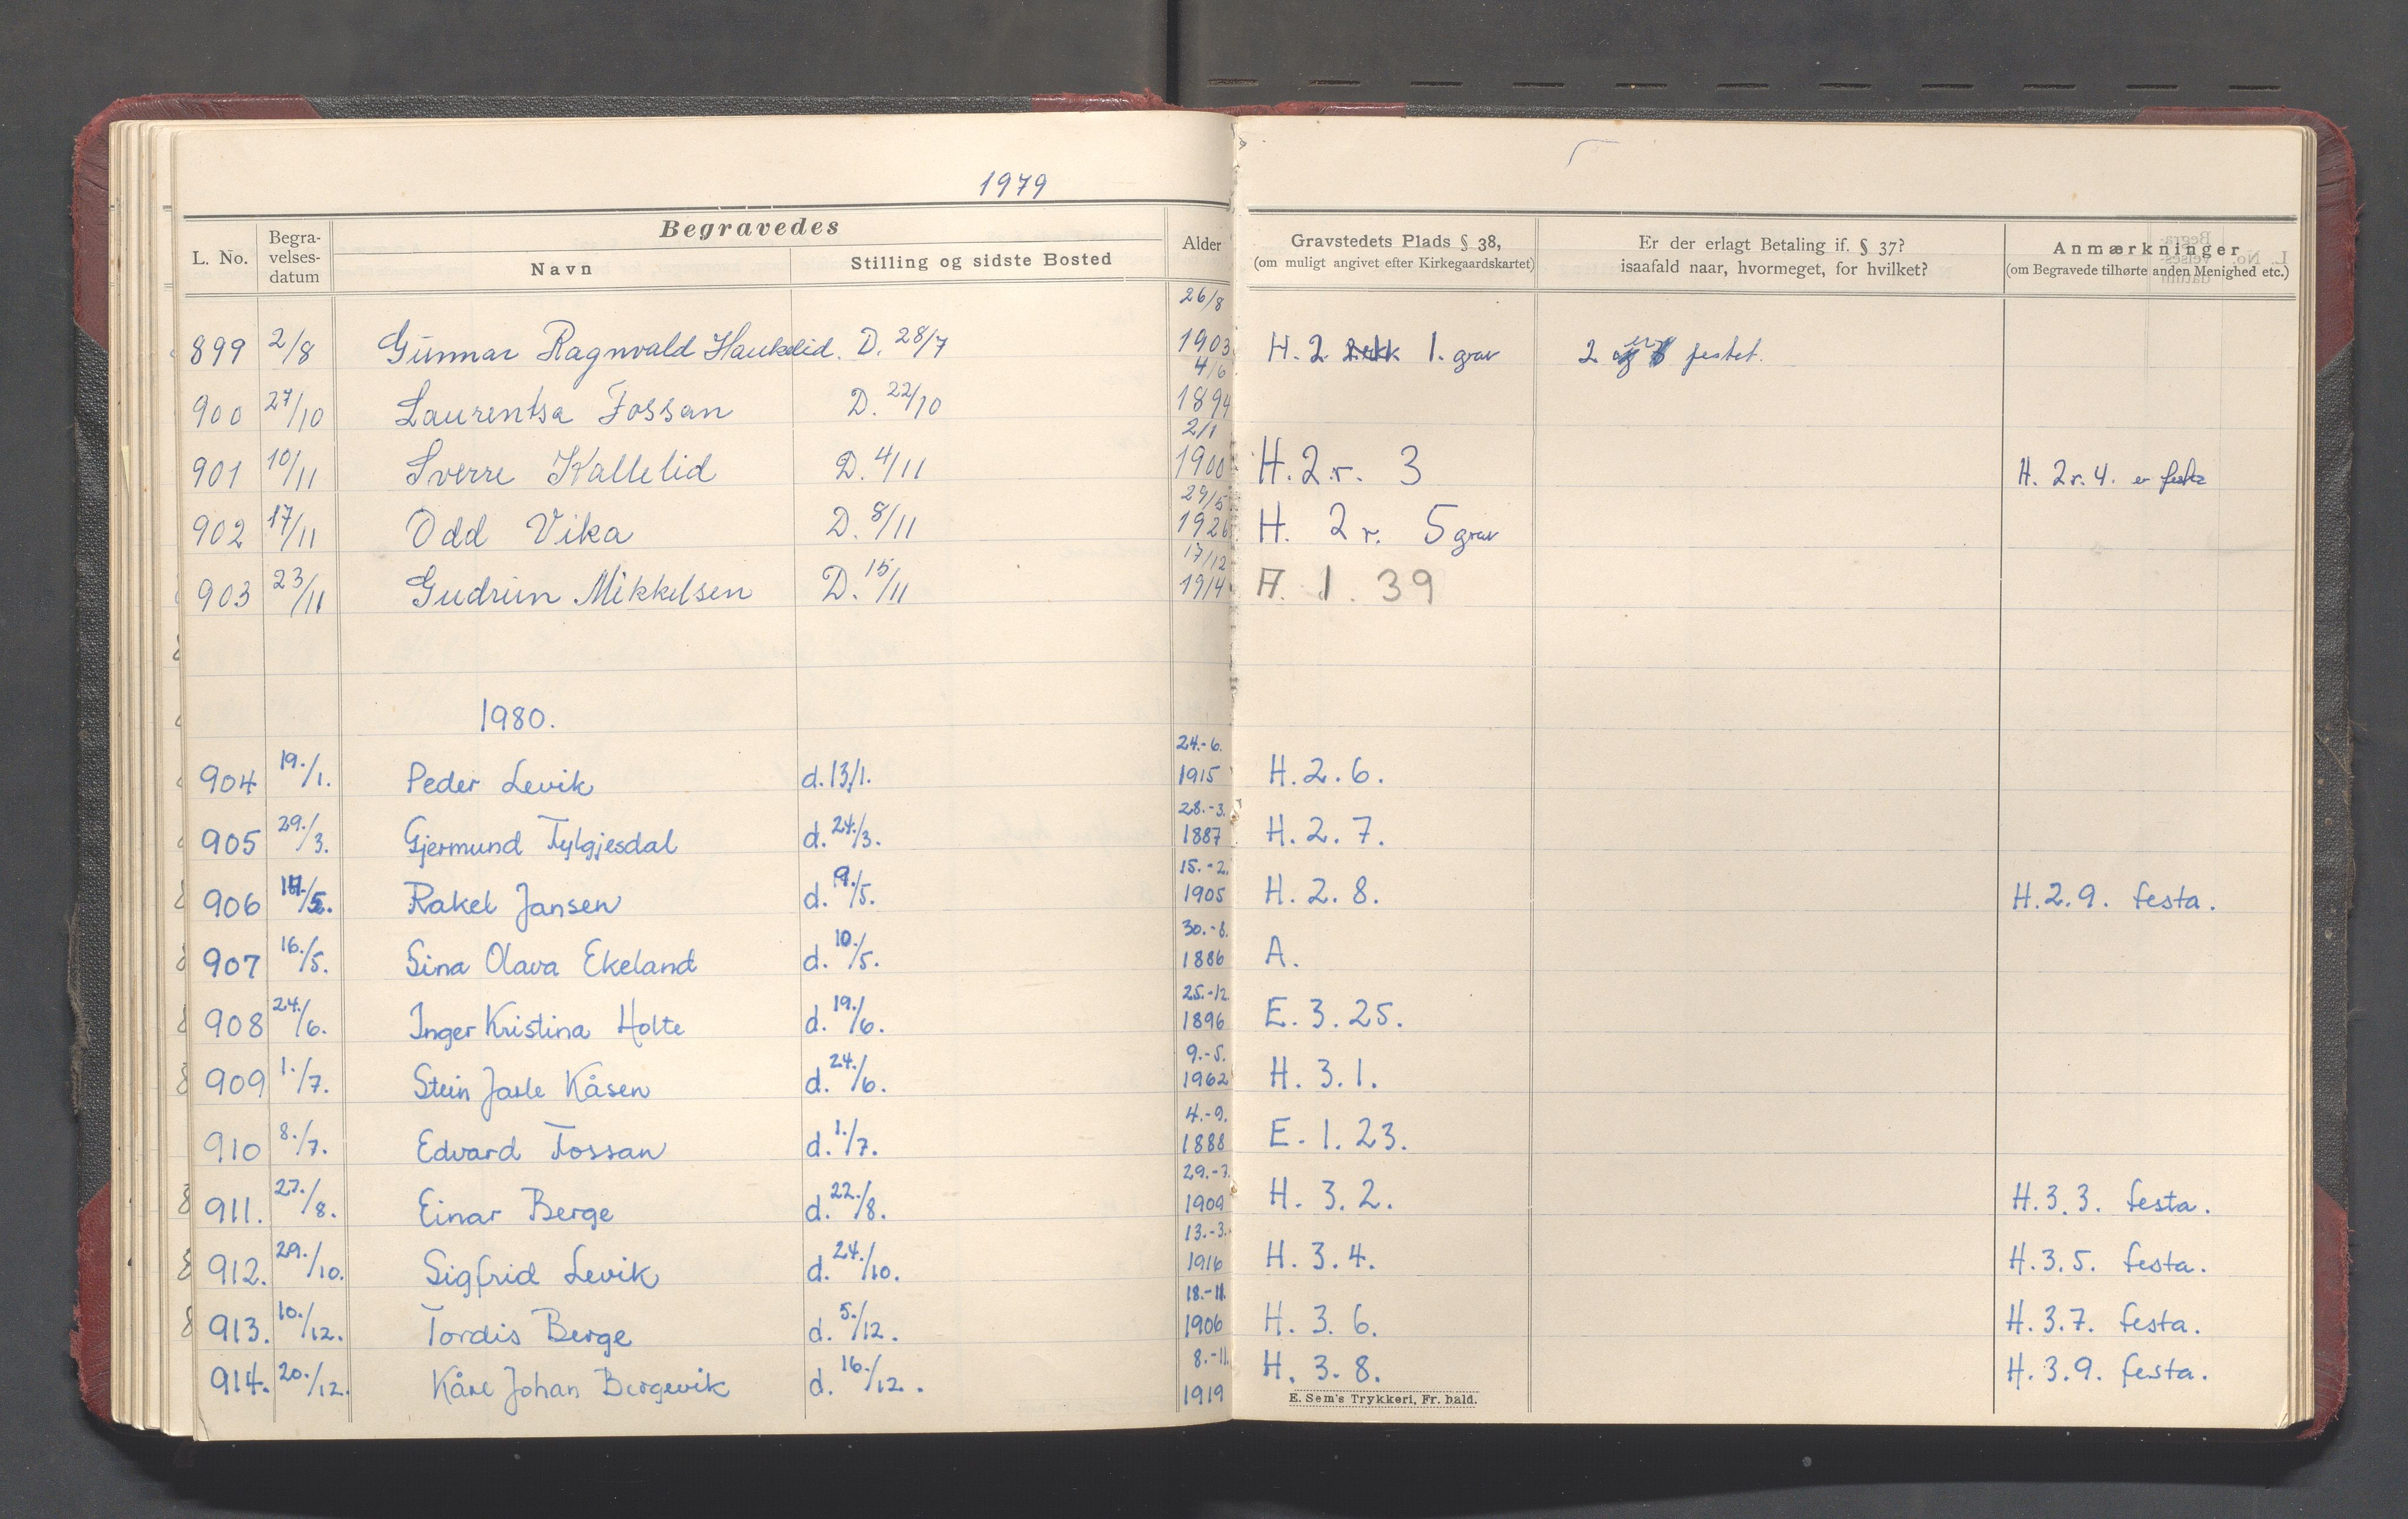 1979
L. No.
Begra-
velses-
datum
Begravedes
Navn
Stilling og sidste Bosted
Alder
Gravstedets Plads § 38,
(om muligt angivet efter Kirkegaardskartet)
Er der erlagt Betaling if. § 37?
isaafald naar, hvormeget, for hvilket?
Anmærkninger
(om Begravede tilhørte anden Menighed etc.)
899 2/8 Gunnar Ragnvald Haukelid. D. 28/7 26/8 1903 H. 2 1. grav 2 er festet.
900 27/10 Laurentsa Fossan D. 22/10 4/6 1894
901 10/11 Sverre Kallelid D. 4/11 2/1 1900 H. 2 r. 3 H. 2 r. 4. er festa
902 17/11 Odd Vika D. 8/11 29/5 1926 H. 2 r. 5 grav
903 23/11 Gudrun Mikkelsen D. 15/11 17/12 1914 A. 1. 39
1980.
904 19./1. Peder Levik d. 13/1. 24.-6. 1915 H. 2. 6.
905 29./3. Gjermund Fylgjesdal d. 24./3. 28.-3. 1887 H. 2. 7.
906 14./5. Rakel Jansen d. 9./5. 15.-2. 1905 H. 2. 8. H. 2. 9. festa.
907 16./5. Sina Olava Ekeland d. 10./5. 30.-8. 1886 A.
908 24./6. Inger Kristina Holte d. 19./6. 25.-12. 1896 E. 3. 25.
909 1./7. Stein Jarle Kåsen d. 24./6. 9.-5. 1962 H. 3. 1.
910 8./7. Edvard Fossan d. 1./7. 4.-9. 1888 E. 1. 23.
911. 27./8. Einar Berge d. 22./8. 29.-7. 1909 H. 3. 2. H. 3. 3. festa.
912. 29./10. Sigfrid Levik d. 24./10. 13.-3. 1916 H. 3. 4. H. 3. 5. festa.
913. 10./12. Tordis Berge d. 5./12. 18.-11. 1906 H. 3. 6. H. 3. 7. festa.
914. 20./12. Kåre Johan Bergevik d. 16./12. 8.-11. 1919 H. 3. 8. H. 3. 9. festa.
E. Sem's Trykkeri, Fr. hald.